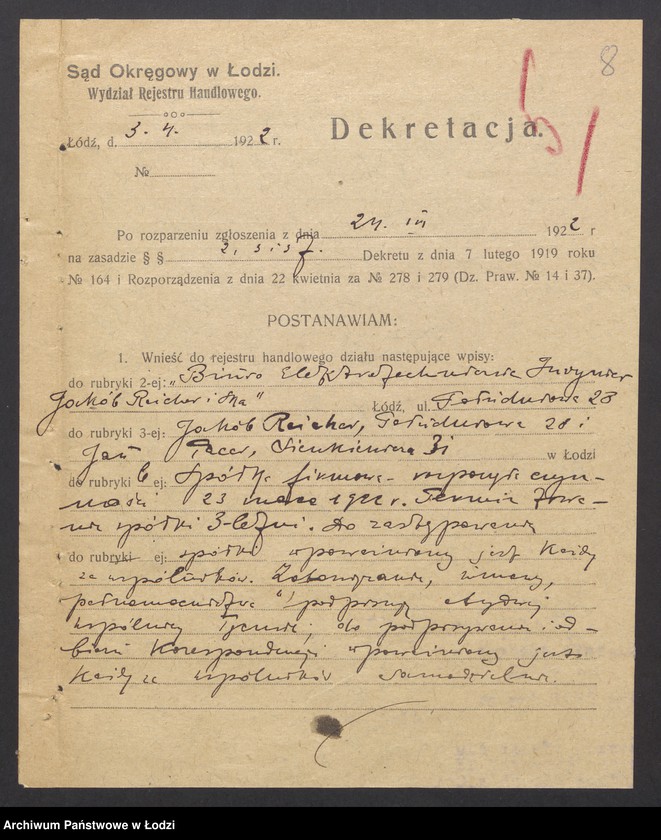 8
Sąd Okręgowy w Łodzi.
Wydział Rejestru Handlowego.
Łódź, d. 3. 4. 1922 r.
Dekretacja.
№
Po rozparzeniu zgłoszenia z dnia 24. III 1922 r
na zasadzie § § 2, 3 i 37. Dekretu z dnia 7 lutego 1919 roku
№ 164 i Rozporządzenia z dnia 22 kwietnia za № 278 i 279 (Dz. Praw. № 14 i 37).
POSTANAWIAM:
1. Wnieść do rejestru handlowego działu następujące wpisy:
do rubryki 2-ej: „Biuro Elektrotechniczne Inżynier
Jakób Reicher i Ska" Łódź, ul. Południowa 28
do rubryki 3-ej: Jakób Reicher, Południowa 28 i
Jan Sienkiewicza w Łodzi
do rubryki 6 ej: Spółka firmowa rozpoczęła czyn-
ności 23 marca 1922 r. Termin trwa-
nia spółki 3-letni. Do zastępowania
do rubryki ej: spółki upoważniony jest każdy
ze wspólników. Zobowiązania, umowy,
pełnomocnictwa podpisują obydwaj
wspólnicy łącznie; do podpisywania i od-
bioru korespondencji upoważniony jest
każdy ze wspólników samodzielnie.
Archiwum Państwowe w Łodzi